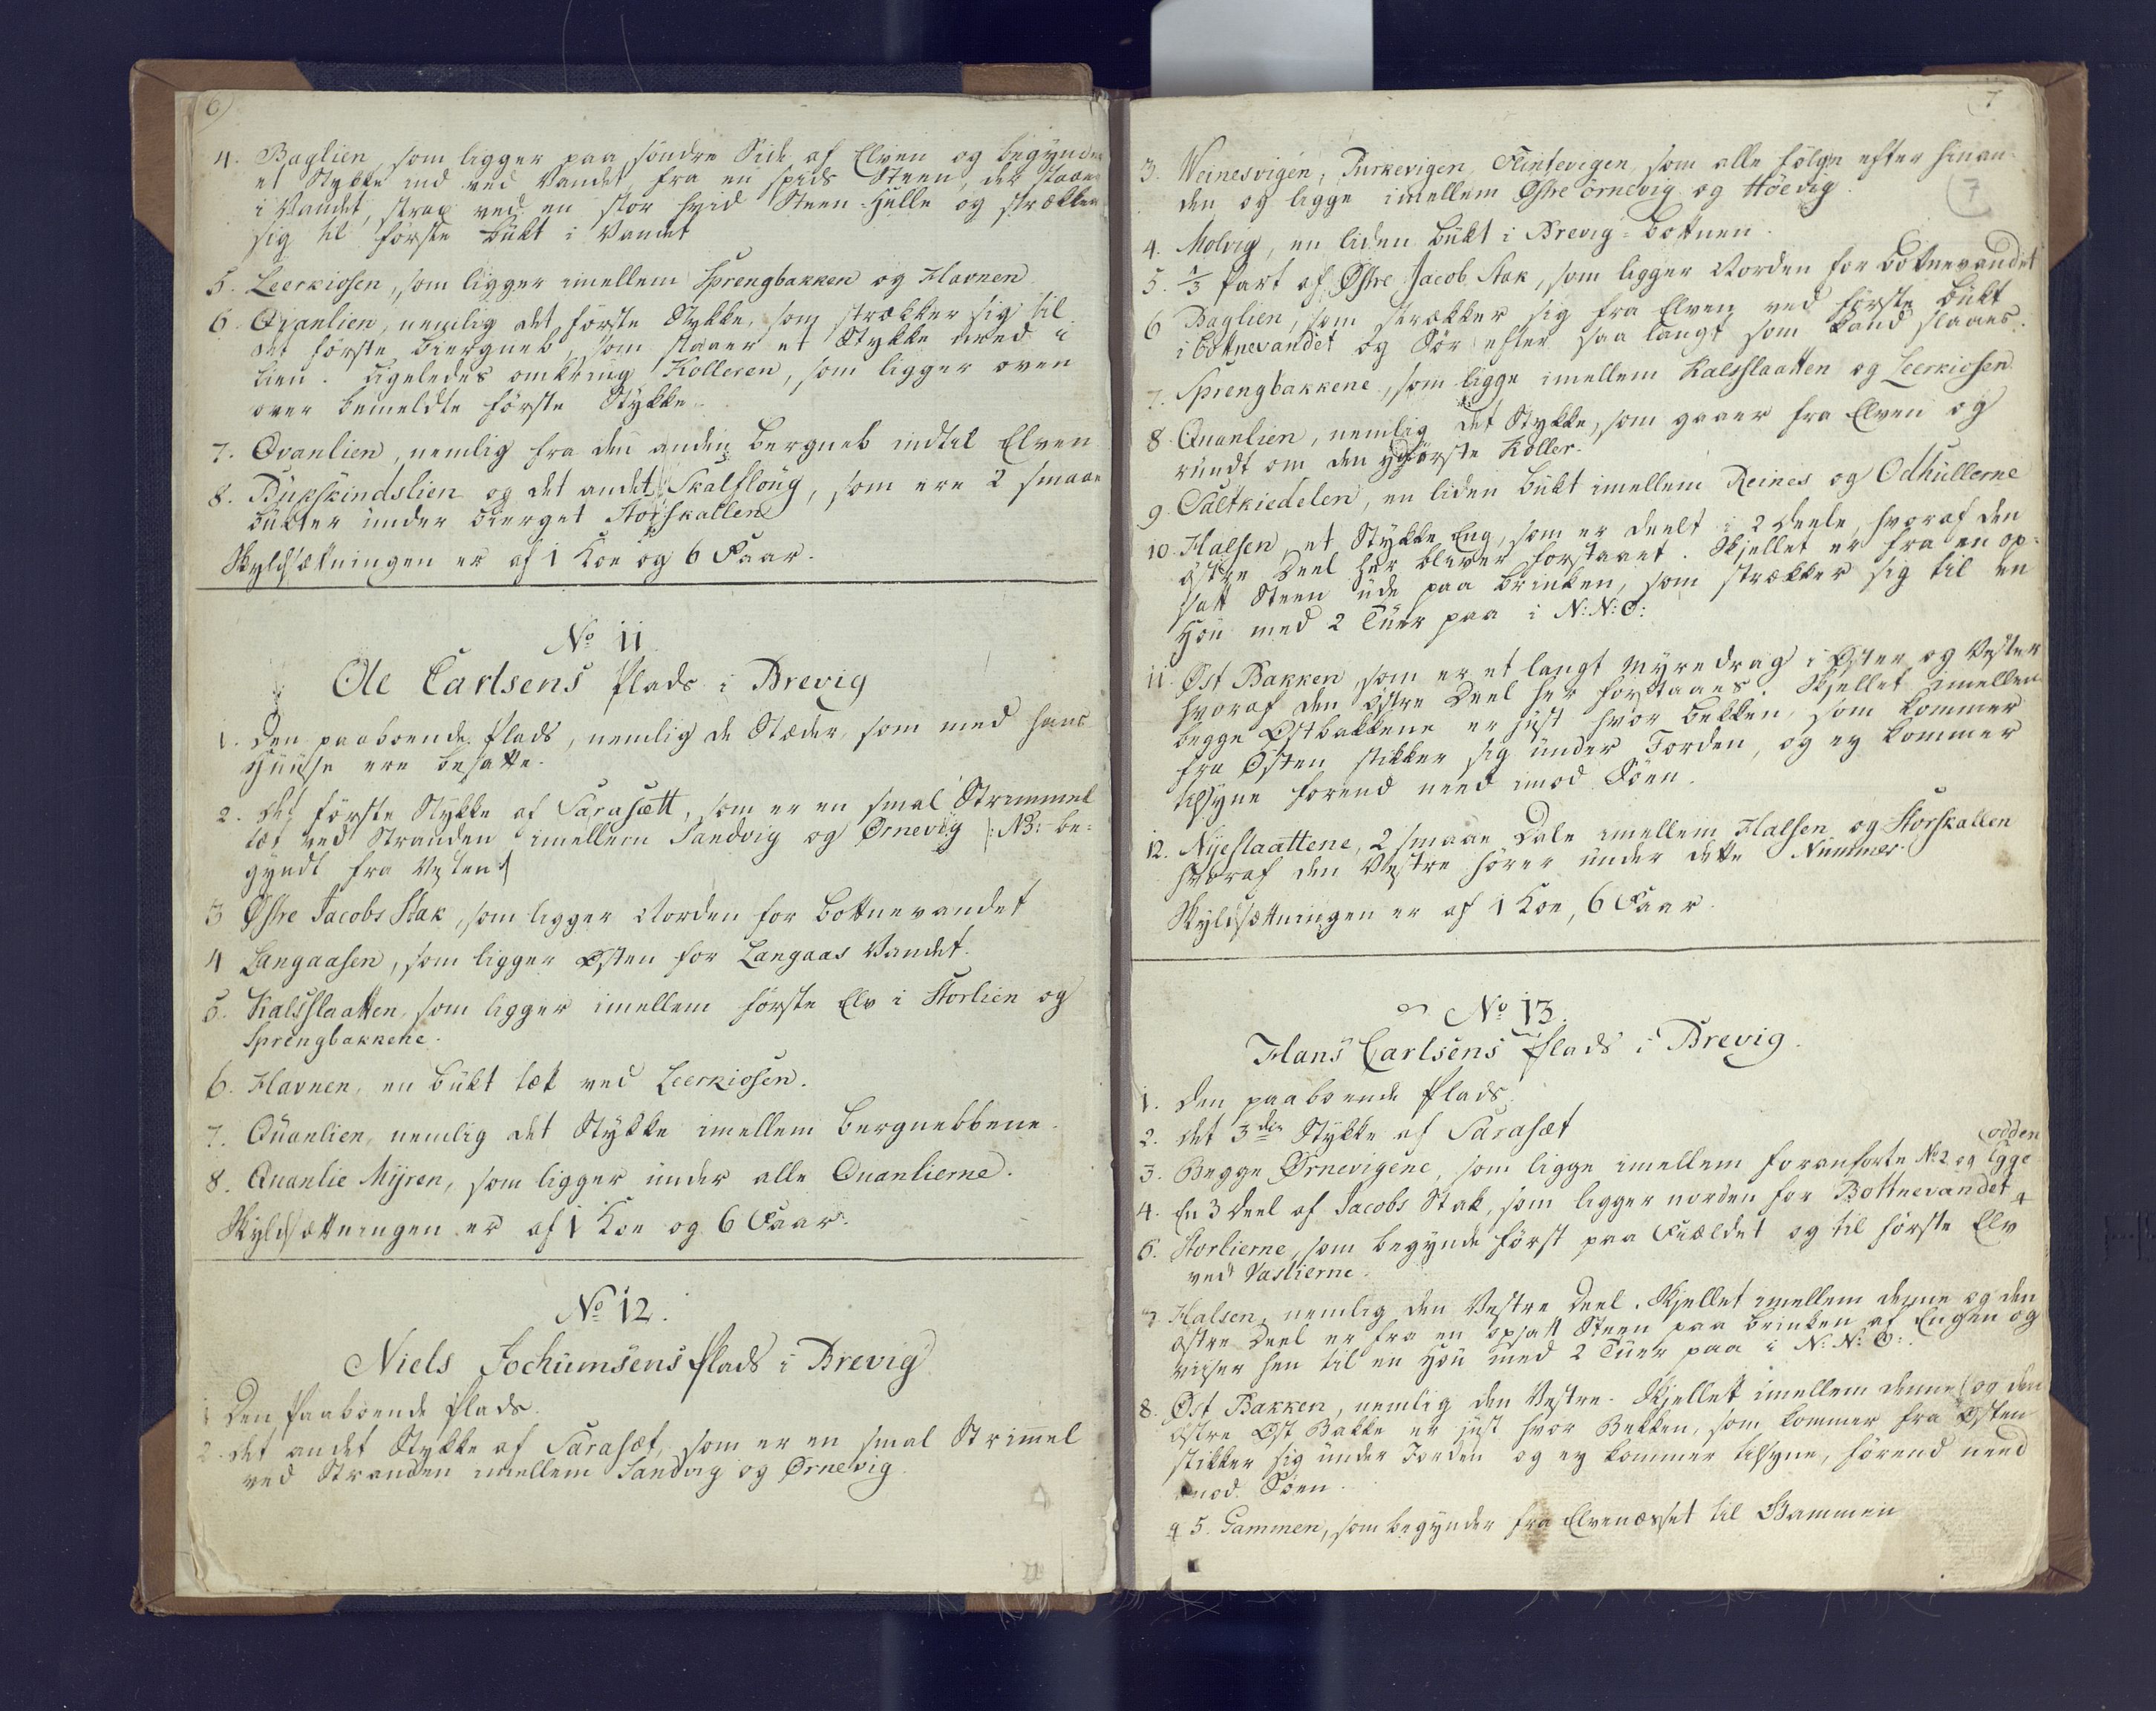 6
4. Baglien, som ligger paa söndre Side af Elven og begynder
et Stykke ind ved Vandet fra en spids Steen, der staaer
i Vandet, strax ved en stor hvid Steen-Helle og strækker
sig til förste Bugt i Vandet
5. Leerkiosen, som ligger imellem Sprengbakken og Havnen
6. Qvanlien, nemlig det förste Stykke, som strækker sig til
det förste Biergneb, som staaer et Stykke need i
Lien. Ligeledes omkring Kolleren, som ligger oven
over bemeldte förste Stykke.
7. Qvanlien, nemlig fra den anden Bergneb indtil Elven
8. Bukskindslien og det andet Skalflöug, som ere 2 smaae
Bugter under Bierget Storskallen
Skyldsætningen er af 1 Koe og 6 Faar.
No 11
Ole Carlsens Plads i Brevig
1. Den paaboende Plads, nemlig de Stæder, som med hans
Huuse ere besatte.
2. Det förste Stykke af Sarasætt, som er en smal Strimmel
tæt ved Stranden imellem Sandvig og Ørnevig |: NB: be-
gyndt fra Vesten :|
3 Østre Jacobs Stak, som ligger Norden for Bottnevandet
4 Langaasen, som ligger Østen for Langaas Vandet.
5. Kalfslaatten, som ligger imellem förste Elv i Storlien og
Sprengbakkene.
6. Havnen, en Bugt tæt ved Leerkiosen.
7. Qvanlien, nemlig det Stykke imellem Bergnebbene.
8. Qvanlie Myren, som ligger under alle Qvanlierne.
Skyldsætningen er af 1 Koe og 6 Faar.
No 12.
Niels Jochumsens Plads i Brevig
1 Den Paaboende Plads.
2. Det andet Stykke af Sarasæt, som er en smal Strimel
ved Stranden imellem Sandvig og Ørnevig.
7
3. Veinesvigen, Purkevigen, Flintevigen, som alle fölge efter hinan-
den og ligge imellem Østre Örnevig og Höevig.
7
4. Molvig, en liden Bugt i Brevig-Bottnen.
5. 1/3 Part af Østre Jacob Stak, som ligger Norden for Bottnevandet
6 Baglien, som strækker sig fra Elven ved förste Bugt
i Bottnevandet og Sör efter saa langt som kand slaaes.
7. Sprengbakkene, som ligge imellem Kalfslaatten og Leerkiosen
8. Qvanlien, nemlig det Stykke, som gaaer fra Elven og
rundt om den yderste Koller.
9. Saltkiedelen, en liden Bugt imellem Reines og Odhullerne
10. Halsen, et Stykke Eng, som er deelt i 2 Deele, hvoraf den
östre Deel her bliver forstaaet. Skjellet er fra en op-
satt Steen ude paa Brinken, som strækker sig til en
Höu med 2 Tuer paa i N: N: O:
11. Øst Bakken, som er et langt Myredrag i Øster og Vester
hvoraf den östre Deel her forstaaes. Skjellet imellem
begge Østbakkene er just hvor Bekken, som kommer
fra Østen stikker sig under Jorden, og ey kommer
tilsyne forend need imod Söen.
12. Nyeslaattene, 2 smaae Dale imellem Halsen og Storskallen
hvoraf den Vestre hörer under dette Nummer.
Skyldsætningen er af 1 Koe, 6 Faar.
No 13.
Hans Carlsens Plads i Brevig.
1. Den paaboende Plads.
2. Det 3die Stykke af Sarasæt
3. Begge Ørnevigene, som ligge imellem foranforte No 2 og Egge
odden
4. En 3 Deel af Jacobs Stak, som ligger norden for Bottnevandet
6. Storlierne, som begynde först paa Fieldet og til förste Elv
ved Vaslierne.
7 Halsen, nemlig den Vestre Deel. Skjellet imellem denne og den
östre Deel er fra en opsatt Steen paa Brinken af Engen og
viser hen til en Höu med 2 Tuer paa i N: N: O:
8. Øst Bakken, nemlig den Vestre. Skjellet imellem denne og den
östre Øst Bakke er just hvor Bekken, som kommer fra Østen
stikker sig under Jorden og ey kommer tilsyne, förend need
imod Söen.
5. Gammen, som begynder fra Elvenæsset til Gammen